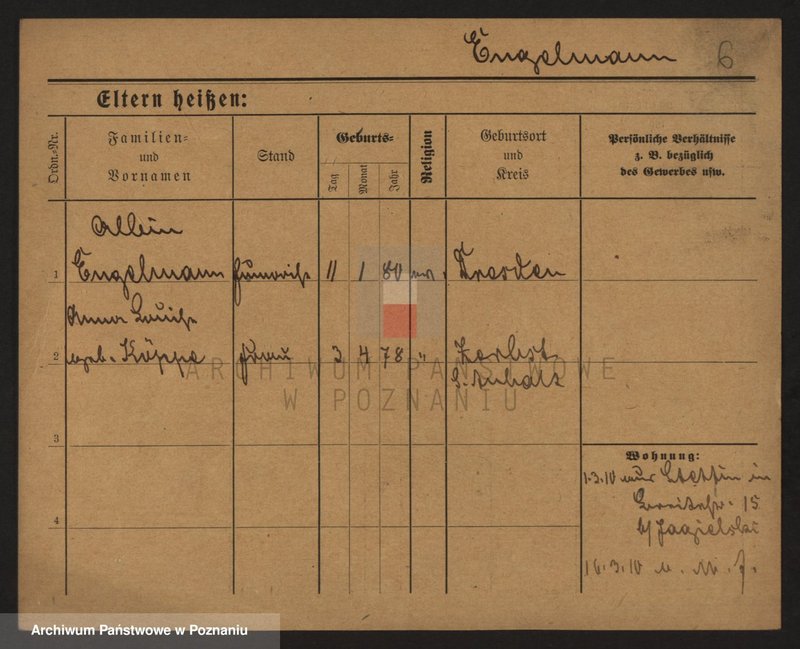 Engelmann 6
Eltern heißen:
Ordn.-Nr.
Familien- und Vornamen
Stand
Geburts-
Tag
Monat
Jahr
Religion
Geburtsort und Kreis
Persönliche Verhältnisse
z. B. bezüglich
des Gewerbes usw.
Albin
1 Engelmann 11 1 80 Dresden
Anna Louise
2 geb. Köppe Frau 3 4 78 " Zerbst
i. Anhalt
3
4
Wohnung:
1.3.10 aus Stettin in
Breitestr. 15
b/ Jagielski
16.3.10
ARCHIWUM PAŃSTWOWE
W POZNANIU
Archiwum Państwowe w Poznaniu